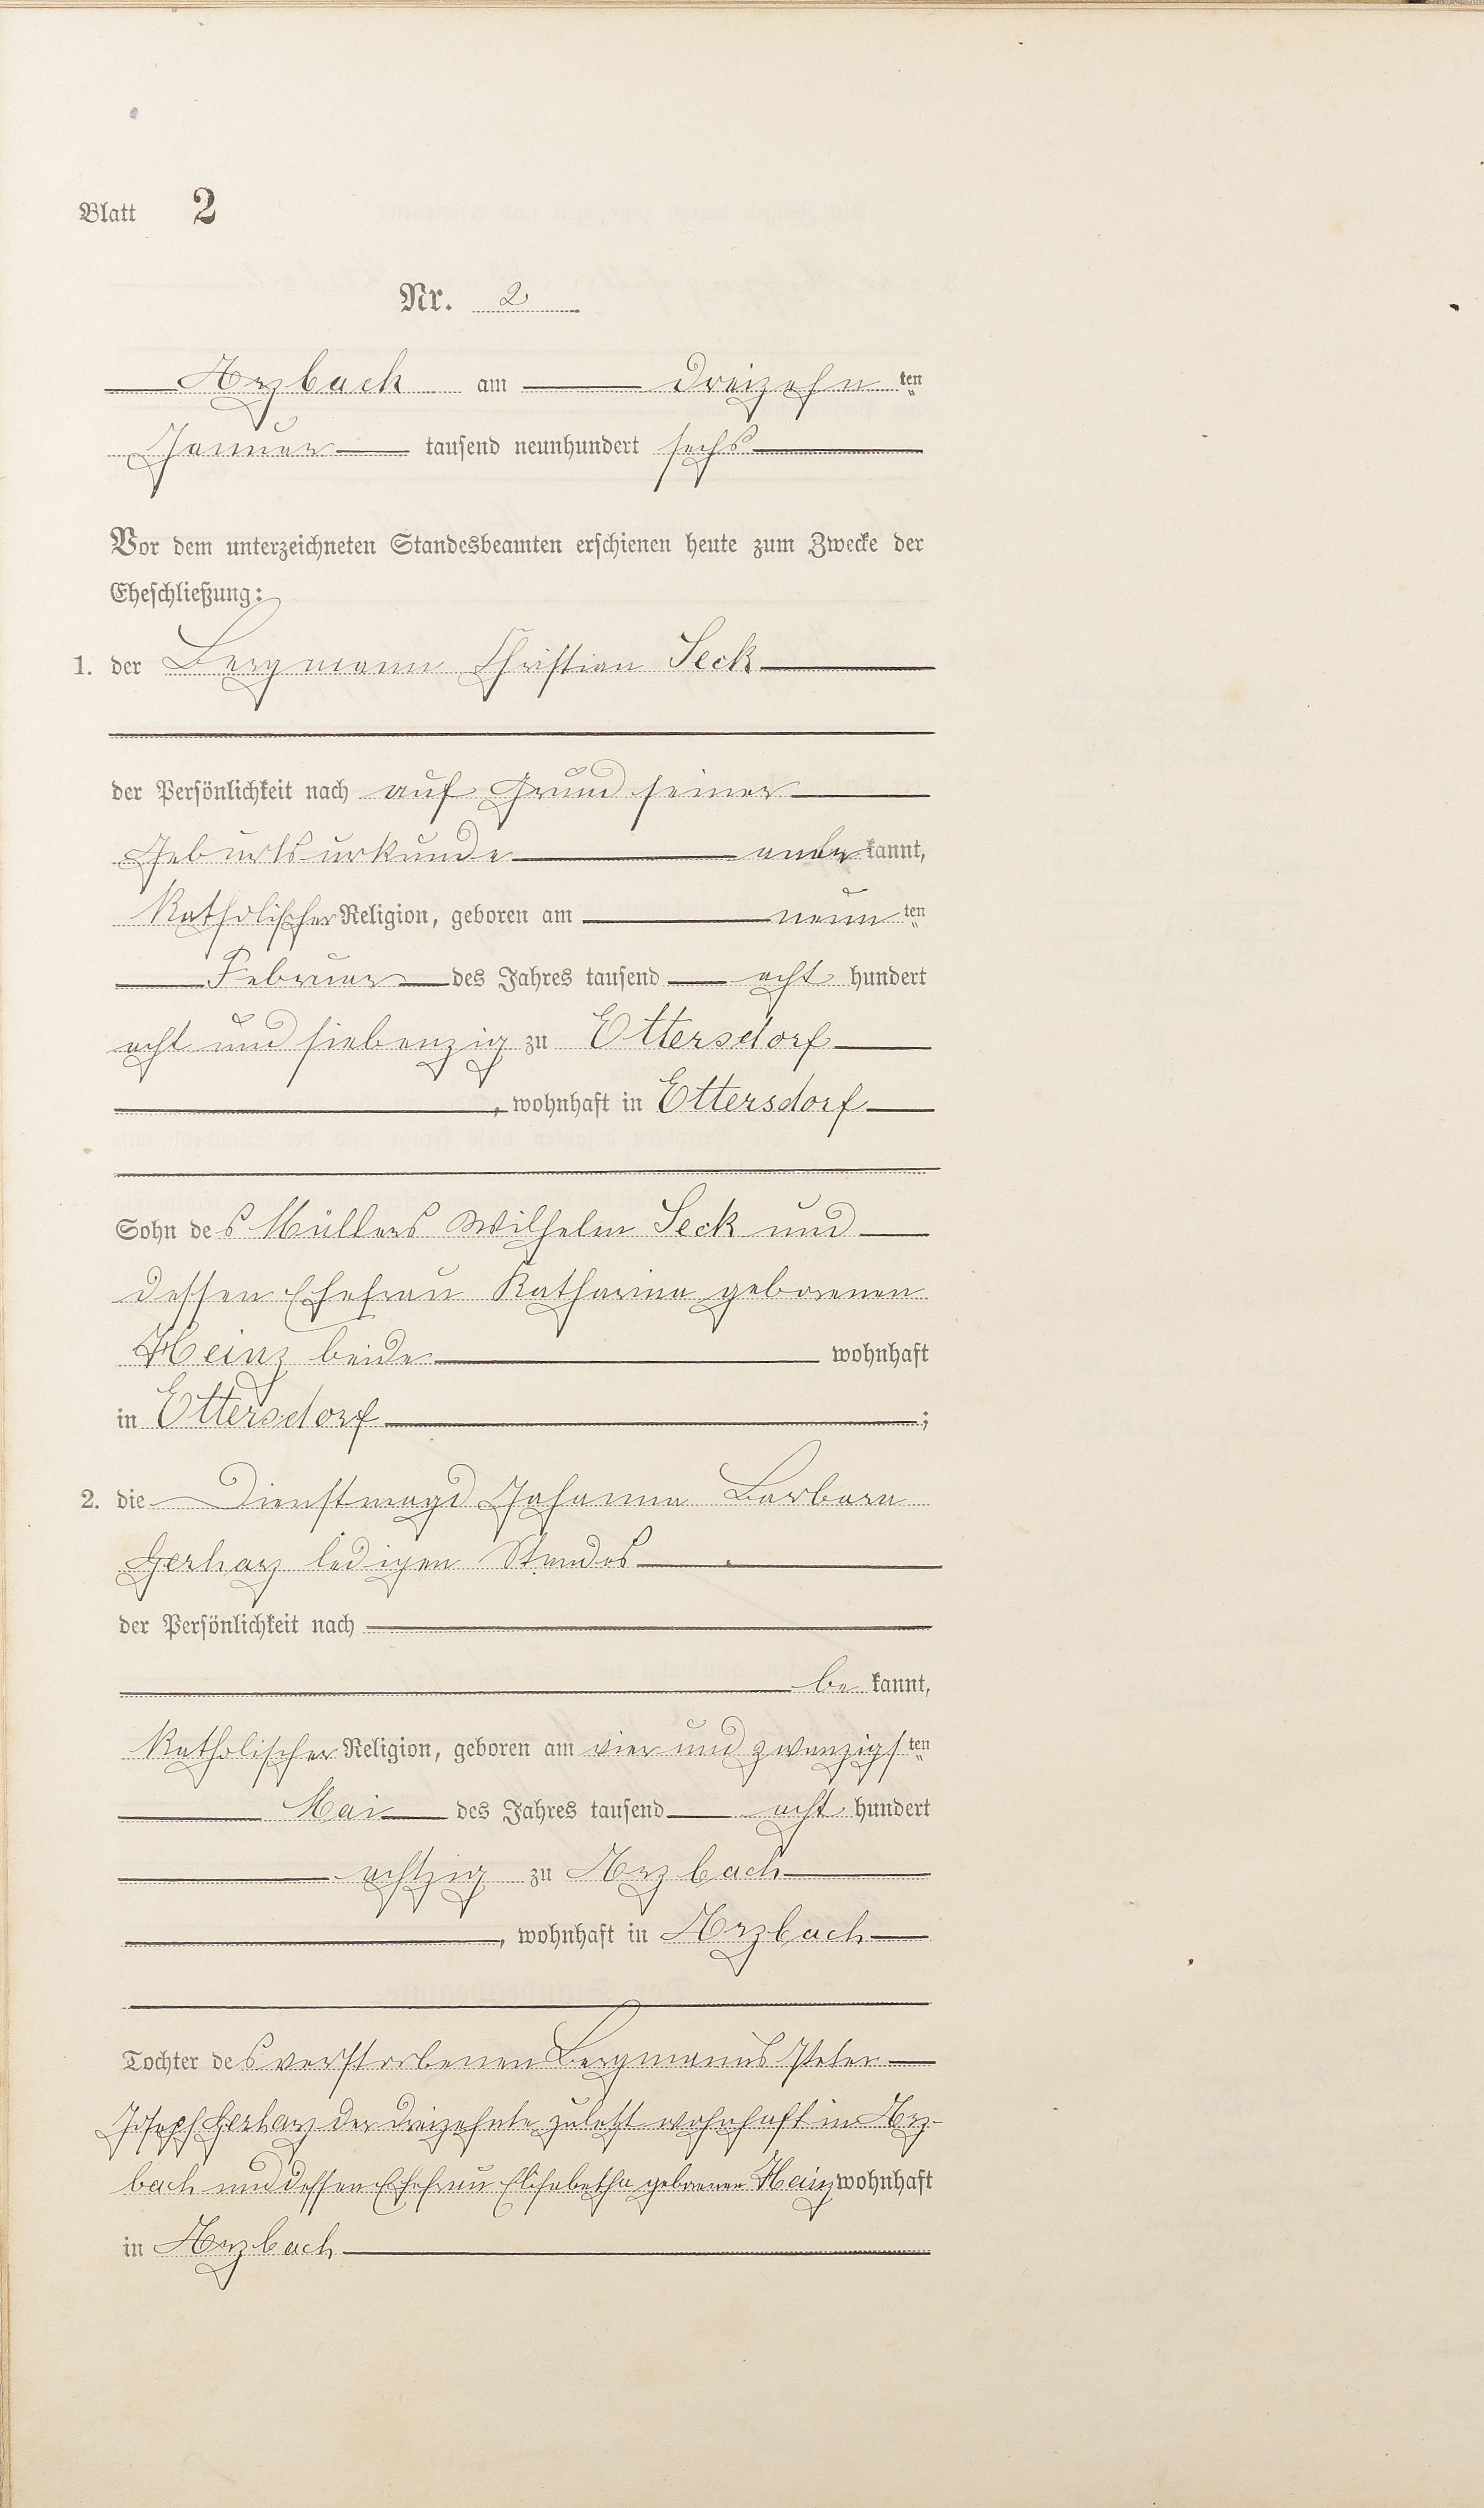 Blatt 2
Nr. 2
Arzbach am dreizehnten
Januar tausend neunhundert sechs
Vor dem unterzeichneten Standesbeamten erschienen heute zum Zwecke der
Eheschließung:
1. der Bergmann Christian Seck
der Persönlichkeit nach auf Grund seiner
Geburtsurkunde anerkannt,
Katholischer Religion, geboren am neunten
Februar des Jahres tausend acht hundert
acht und siebenzig zu Ettersdorf
, wohnhaft in Ettersdorf
Sohn des Müllers Wilhelm Seck und
dessen Ehefrau Katharina geborenen
Heinz beide wohnhaft
in Ettersdorf ;
2. die Dienstmagd Johanna Barbara
Gerharz ledigen Standes
der Persönlichkeit nach
be kannt,
Katholischer Religion, geboren am vier und zwanzigsten
Mai des Jahres tausend acht hundert
achtzig zu Arzbach
, wohnhaft in Arzbach
Tochter des verstorbenen Bergmanns Peter
Joseph Gerharz der dreizehnte zuletzt wohnhaft in Arz-
bach und dessen Ehefrau Elisabetha geborenen Heinz wohnhaft
in Arzbach